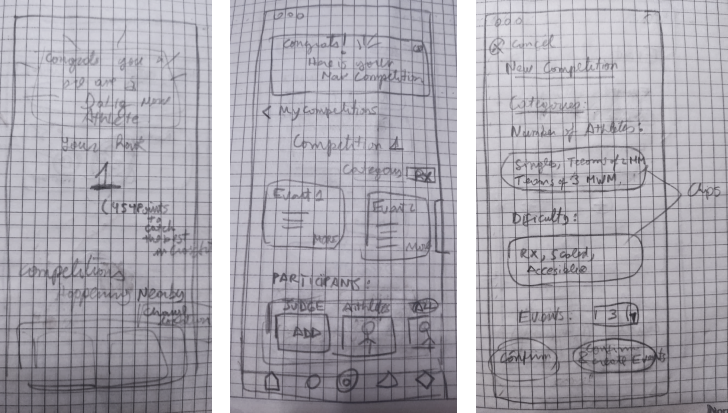 Congrats you
are a
Dalia new
Athlete
Your Rank
1
(454 Points
to
catch
the best
Competitions
Happening Nearby
Congrats!
Here is your
New Competition
< My Competitions
Competition 1
Category RX
Event 1
More
Event 2
More
PARTICIPANTS:
JUDGE
Athletes
ADD
Cancel
New Competition
Categories:
Number of Athletes:
Singles, Teams of 2 MM
Teams of 3 MWM,
Chips
Dificulty:
RX, Scaled,
Accesible
Events: 3
Confirm
Confirm
& create Events